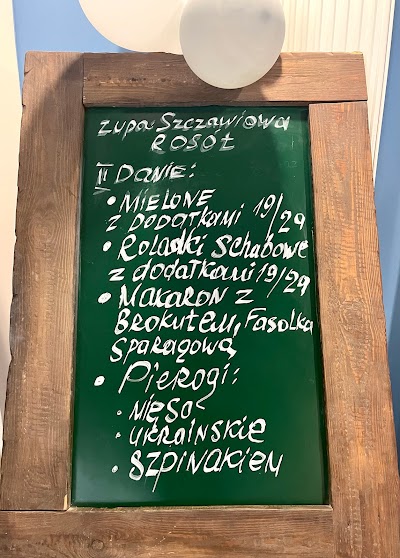 Zupa: Szczawiowa
ROSÓŁ
II DANIE:
• MIELONE
Z DODATKAMI 19/29
• ROLADKI SCHABOWE
Z dodatkami 19/29
• MAKARON Z
BROKUŁEM, FASOLKA
SPARAGOWĄ
• Pierogi:
• MIĘSO
• UKRAINSKIE
• SZPINAKIEM